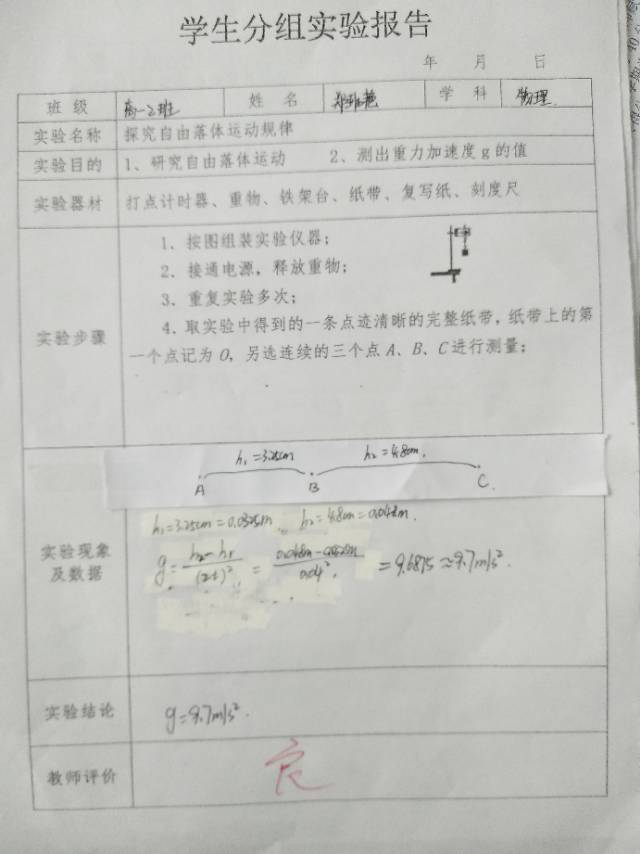 学生分组实验报告
年 月 日
班级 高一2班 姓名 学科 物理
实验名称 探究自由落体运动规律
实验目的 1、研究自由落体运动 2、测出重力加速度g的值
实验器材 打点计时器、重物、铁架台、纸带、复写纸、刻度尺
1、按图组装实验仪器；
2、接通电源，释放重物；
3、重复实验多次；
实验步骤
4．取实验中得到的一条点迹清晰的完整纸带，纸带上的第
一个点记为O，另选连续的三个点A、B、C进行测量；
h₁=3.25cm h₂=4.8cm.
A B C
h₁=3.25cm=0.0325m h₂=4.8cm=0.048m.
实验现象及数据
g= h₂-h₁/(2t)² = 0.048m-0.0325m/0.04² =9.6875≈9.7m/s².
实验结论 g=9.7m/s².
教师评价